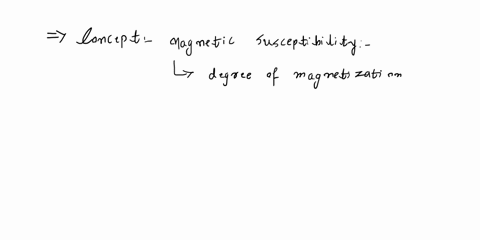 ⇒ Concept:- magnetic susceptibility:-
↳ degree of magnetization